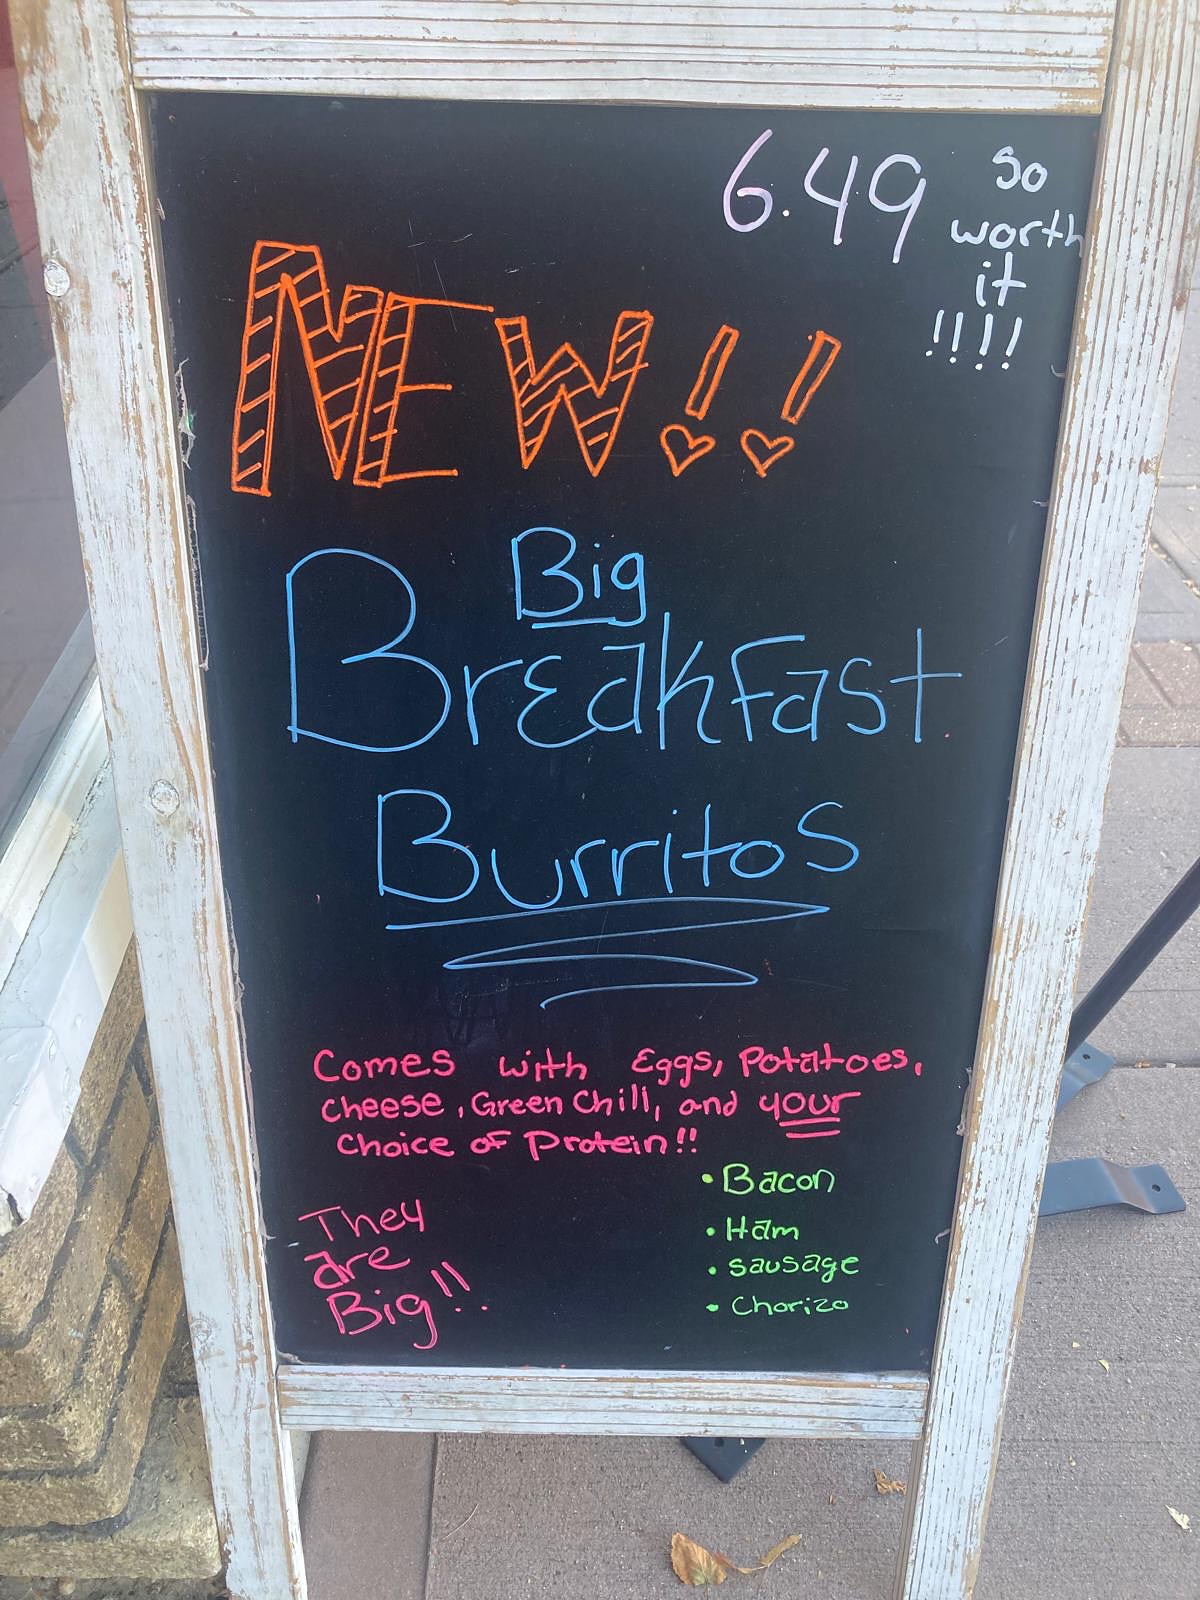 6.49
So
worth
it
!!!!
NEW!!
Big
Breakfast
Burritos
Comes with Eggs, Potatoes,
Cheese, Green Chill, and your
Choice of Protein!!
• Bacon
• Ham
• sausage
• Chorizo
They
are
Big!!